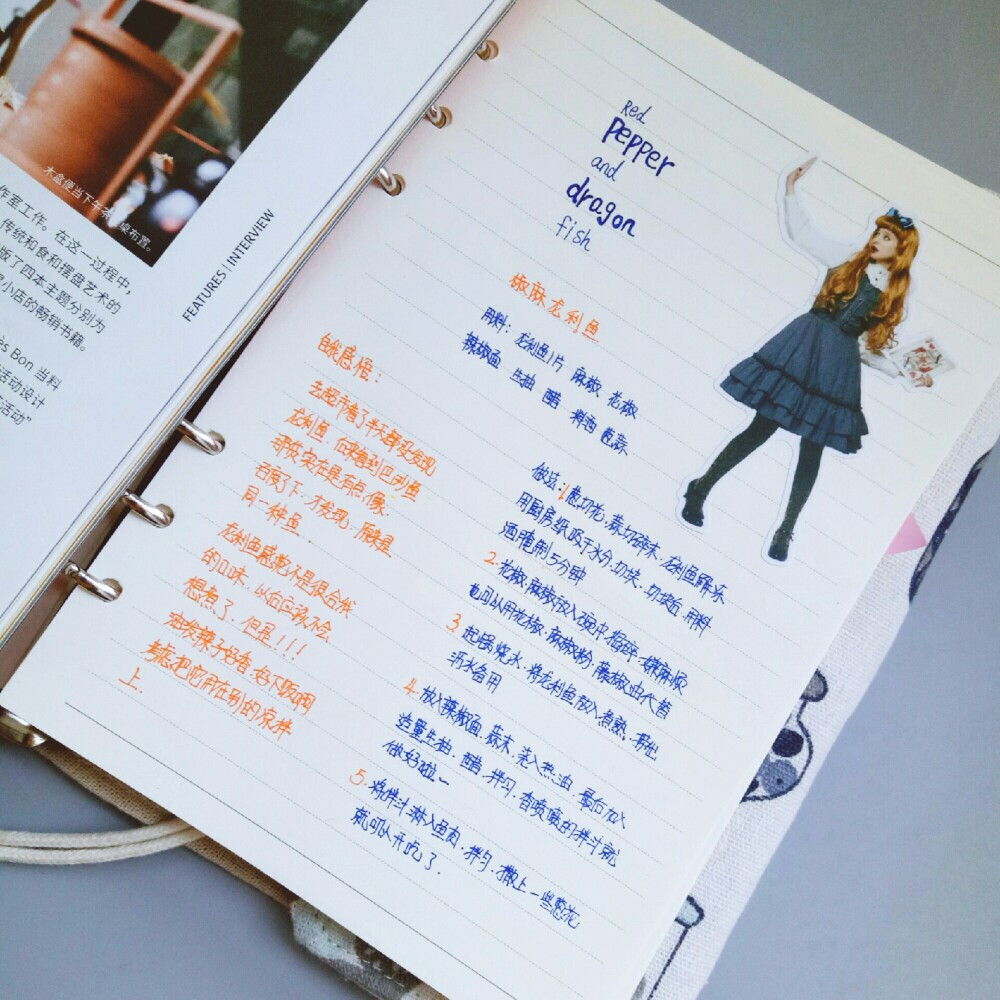 木盒便当下午茶 桌布置。
作室工作。在这一过程中，
传统和食和摆盘艺术的
版了四本主题分别为
小店的畅销书籍。
ès Bon 当料
活动设计
活动”
FEATURES | INTERVIEW
Red
pepper
and
dragon
fish
椒麻龙利鱼
用料：龙利鱼1片 麻椒 花椒
辣椒面 生抽 醋 料酒 葱蒜
做法：1.葱切花，蒜切碎末，龙利鱼解冻
用厨房纸吸干水分，切块，切块后 用料
酒腌制5分钟
2.花椒，麻椒放入碗中捣碎，嫌麻烦
也可以用花椒，麻椒粉，藤椒油代替
3 起锅烧水，将龙利鱼放入煮熟，捞出
沥水备用
4.放入辣椒面，蒜末，浇入热油，最后放入
适量生抽，醋，拌匀，香喷喷的拌汁就
做好啦~
5.将拌汁淋入鱼肉，拌匀，撒上一些葱花
就可以开吃了.
自我感悟：
去超市看了半天都没发现
龙利鱼，但猜到巴沙鱼
那货实在是有点像，
百度了下，才发现，原来是
同一种鱼.
龙利鱼感觉不是很合我
的口味，以后应该不会
想煮了，但是!!!
油泼辣子好香，好下饭啊
考虑把它用在别的凉拌
上.